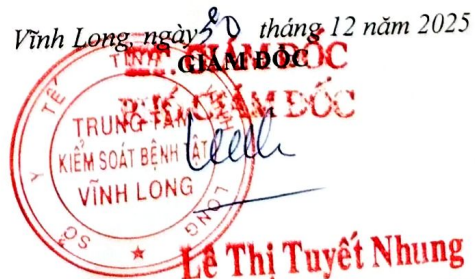 Vĩnh Long, ngày 30 tháng 12 năm 2025
GIÁM ĐỐC
KT. GIÁM ĐỐC
PHÓ GIÁM ĐỐC
SỞ Y TẾ TỈNH VĨNH LONG
TRUNG TÂM
KIỂM SOÁT BỆNH TẬT
VĨNH LONG
Lê Thị Tuyết Nhung